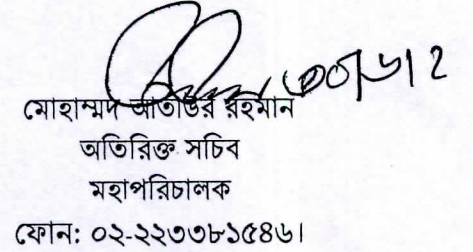 ৩০/৬/২
মোহাম্মদ আতাউর রহমান
অতিরিক্ত সচিব
মহাপরিচালক
ফোন: ০২-২২৩৩৮১৫৪৬।